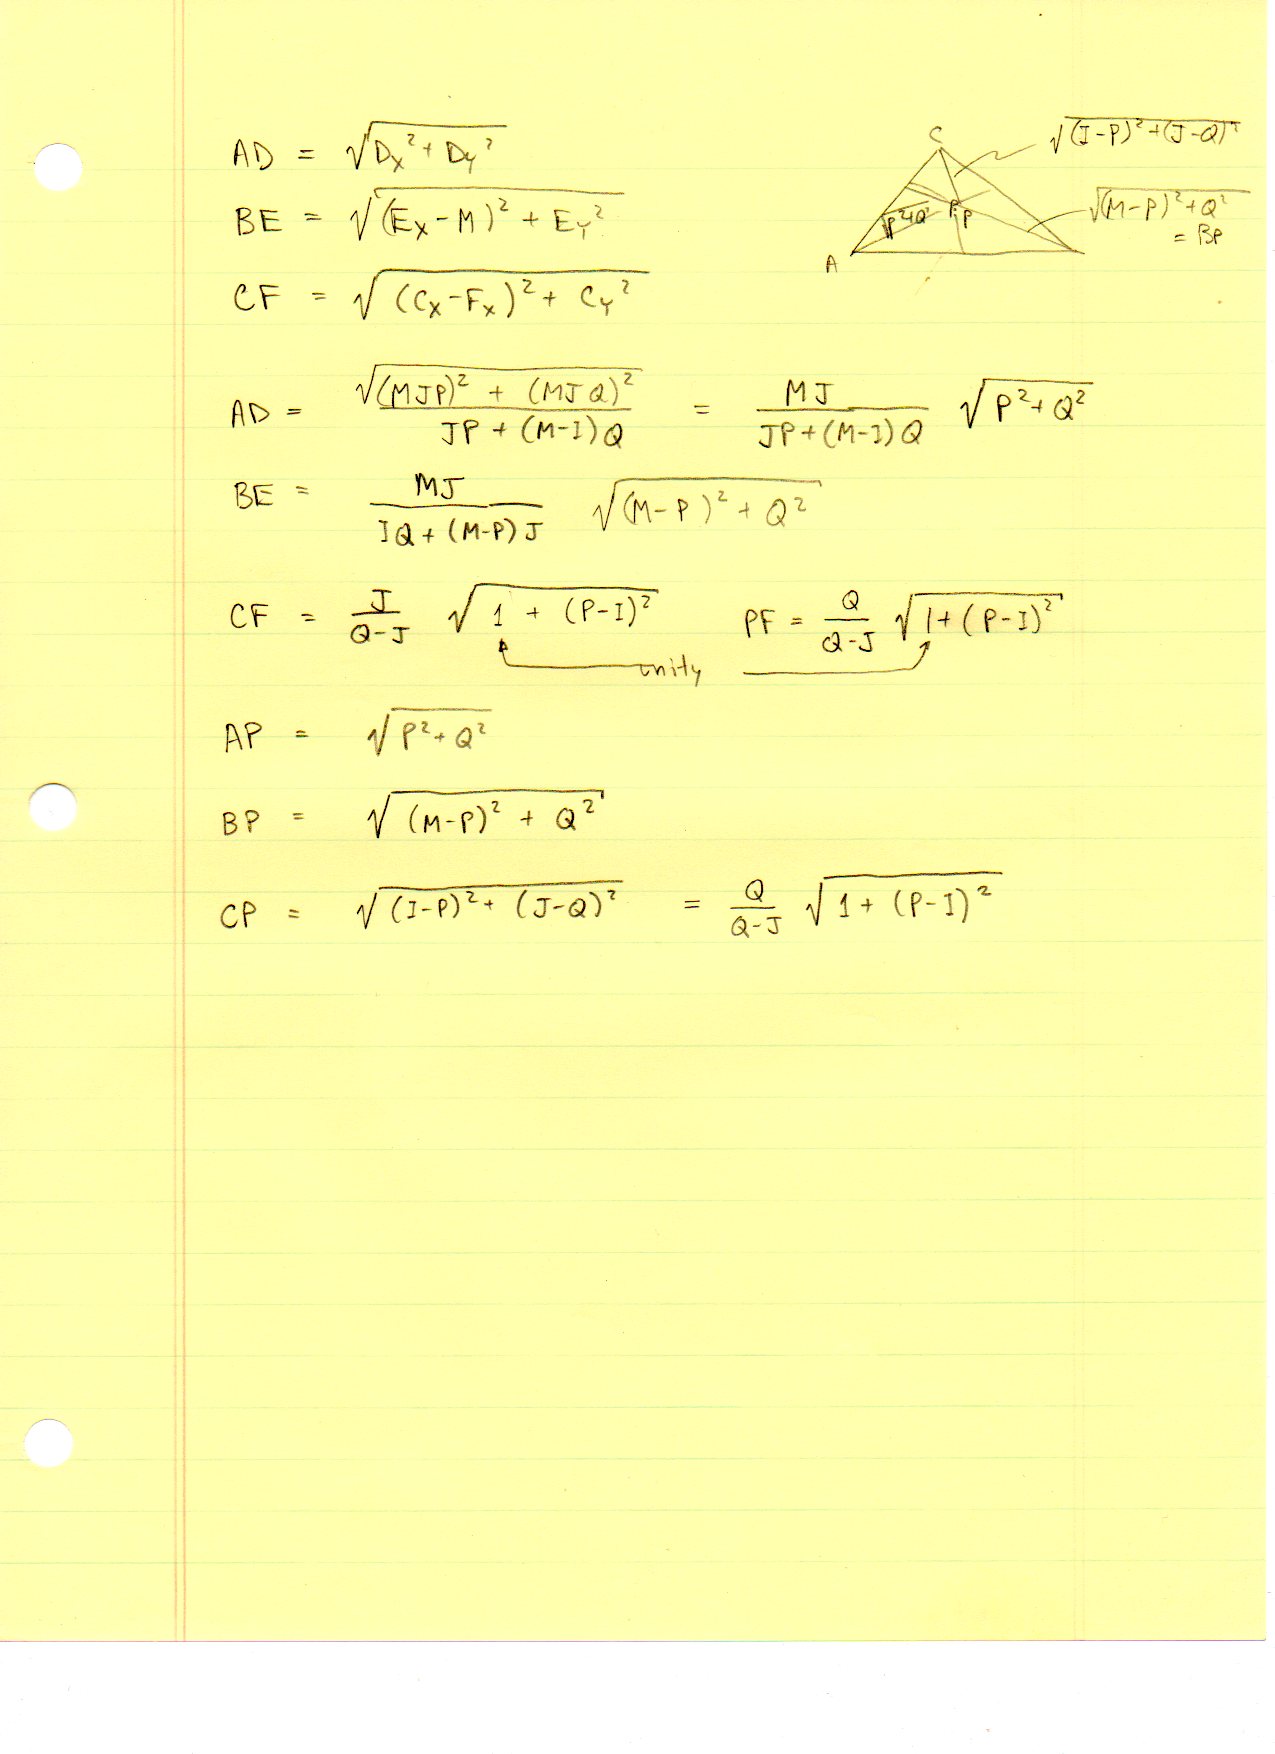 AD = √(Dx² + Dy²)
BE = √((Ex - M)² + Ey²)
CF = √((Cx - Fx)² + Cy²)
C
√((I-P)² + (J-Q)²)
√(P²+Q²)
P
P
√((M-P)² + Q²)
= BP
A
AD = √((MJP)² + (MJQ)²) / (JP + (M-I)Q) = MJ / (JP + (M-I)Q) √(P² + Q²)
BE = MJ / (IQ + (M-P)J) √((M-P)² + Q²)
CF = J / (Q-J) √(1 + (P-I)²) PF = Q / (Q-J) √(1 + (P-I)²)
unity
AP = √(P² + Q²)
BP = √((M-P)² + Q²)
CP = √((I-P)² + (J-Q)²) = Q / (Q-J) √(1 + (P-I)²)